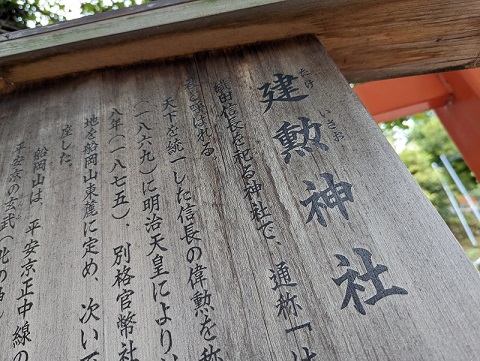 建勲神社
たけ いさお
織田信長を祀る神社で、通称「
と呼ばれる。
天下を統一した信長の偉勲を称
(一八六九)に明治天皇により
八年(一八七五)、別格官幣社
地を船岡山東麓に定め、次い
座した。
船岡山は、平安京正中線の
平安京の玄武(北の